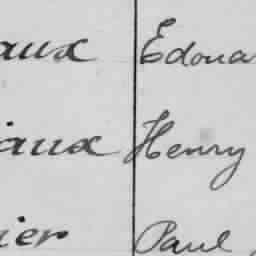 aux Edoua
iaux Henry
ier Paul